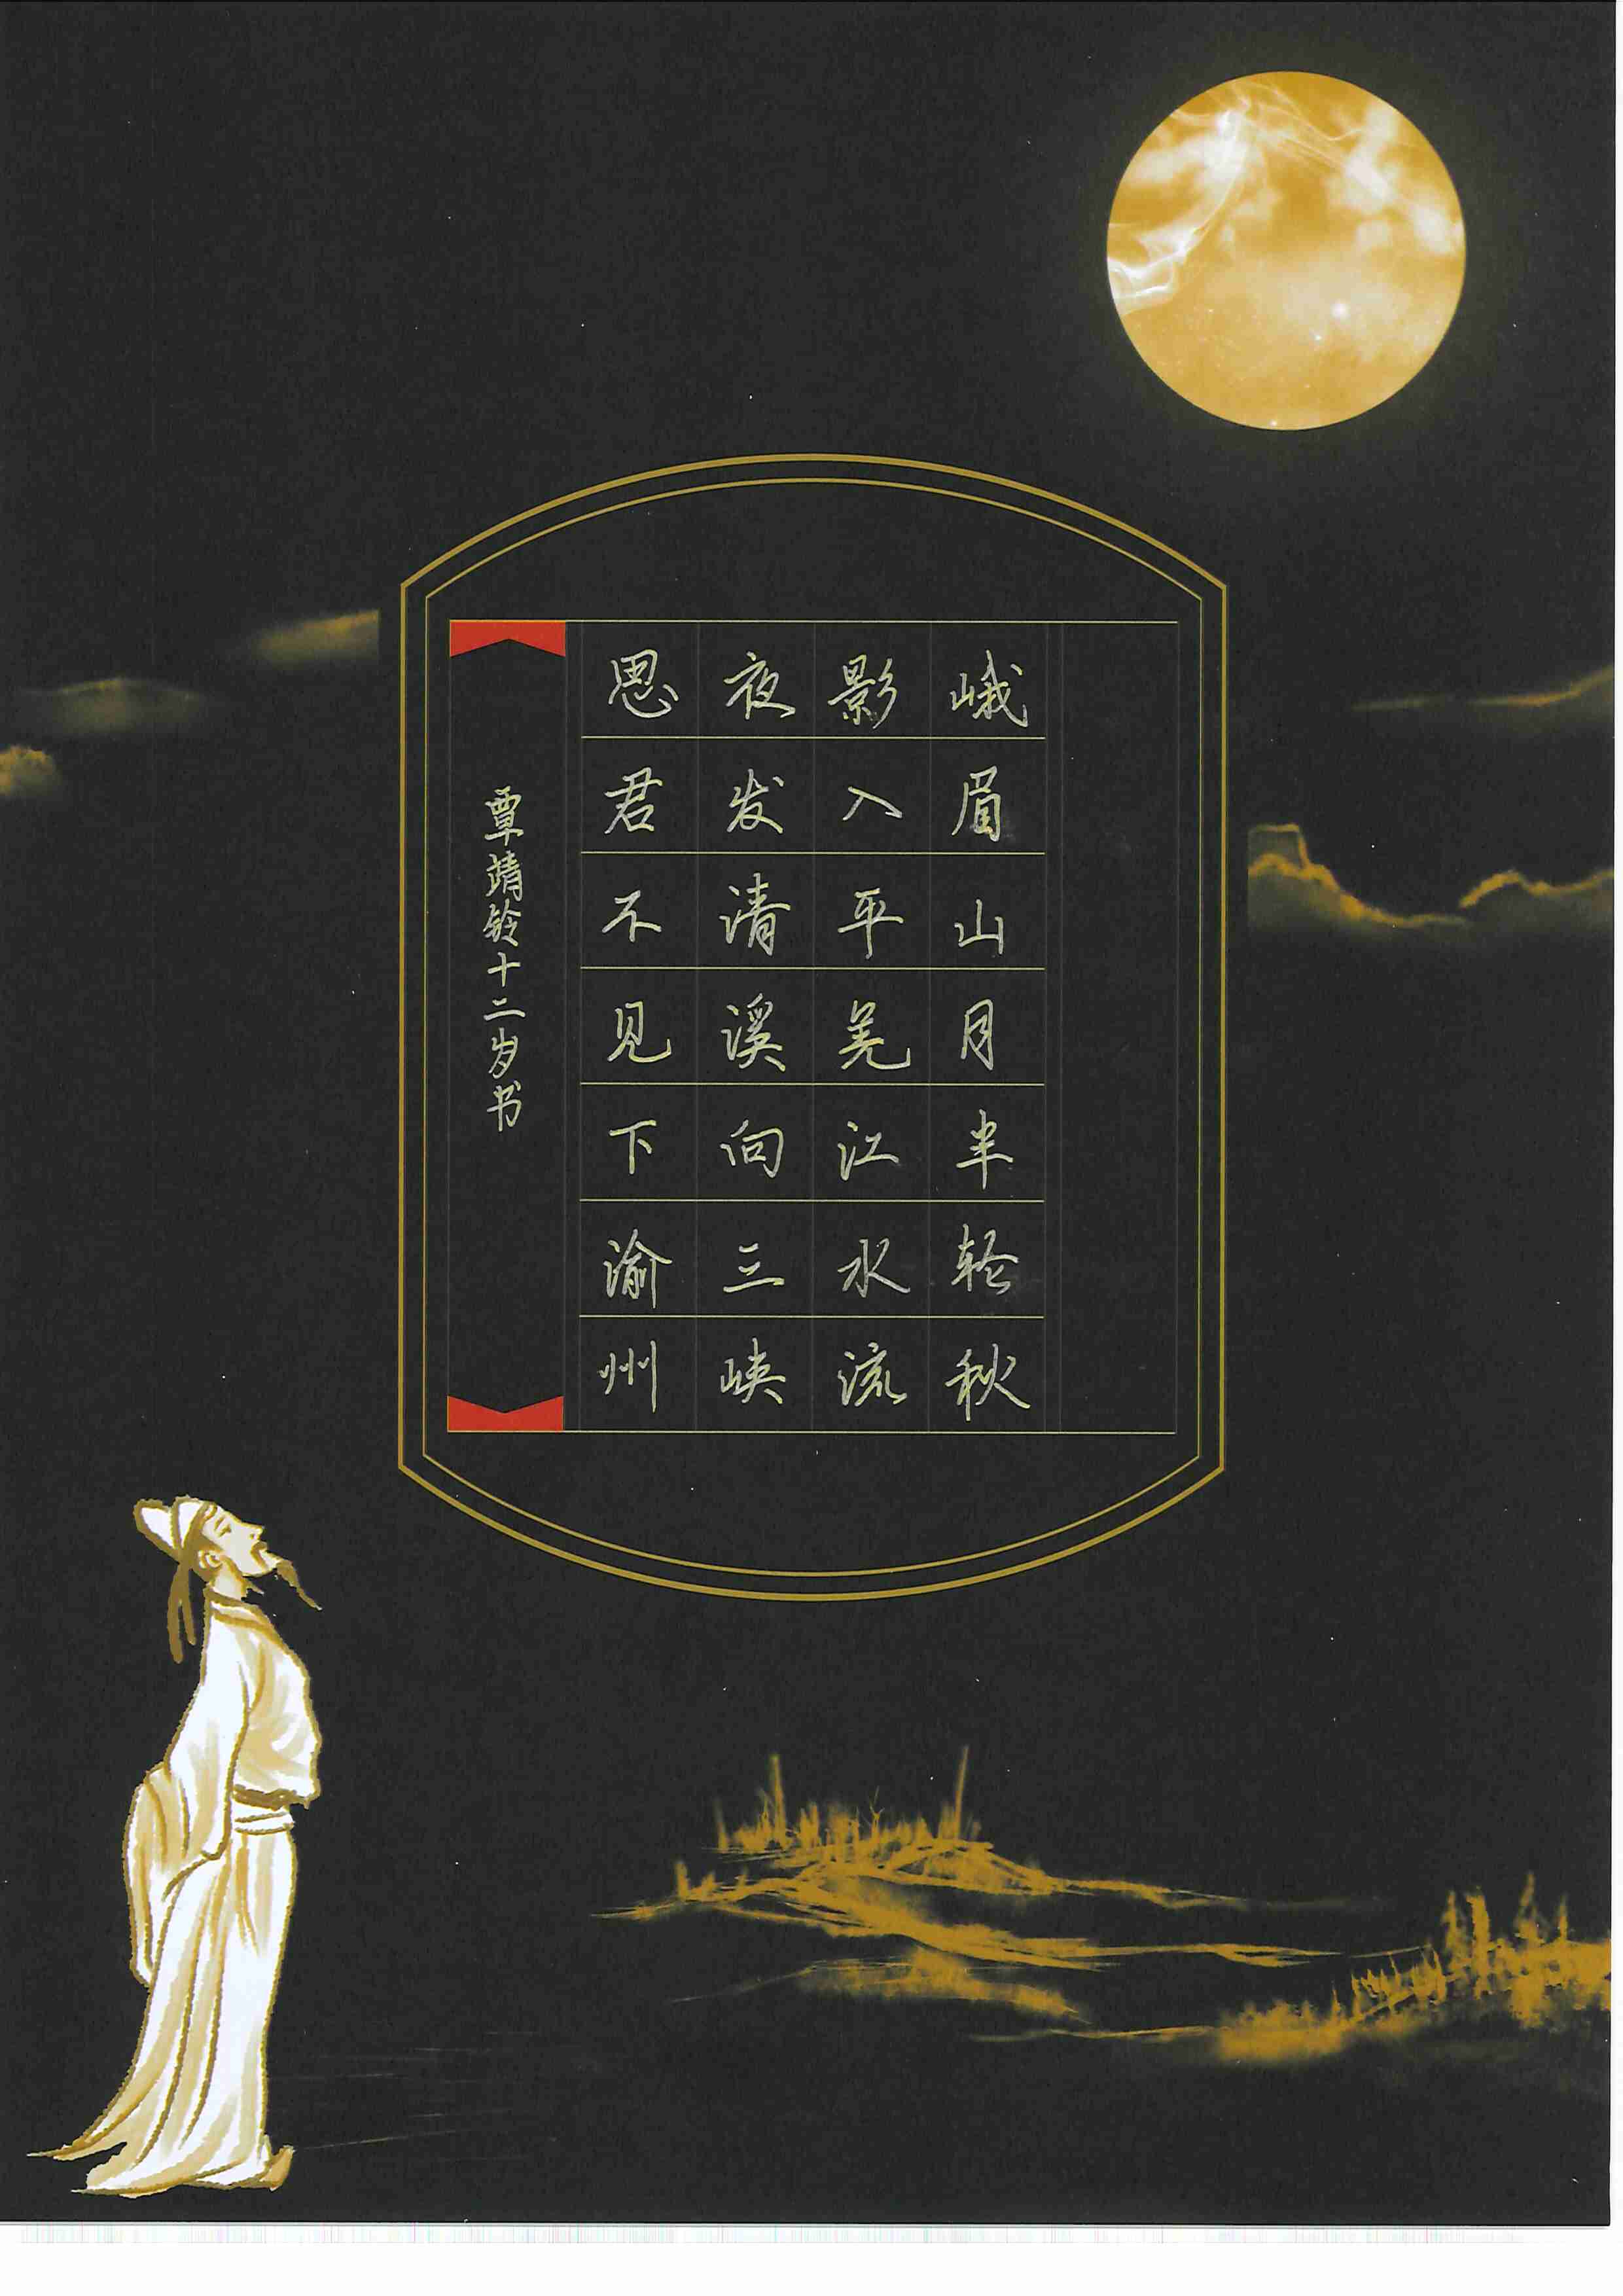 峨眉山月半轮秋
影入平羌江水流
夜发清溪向三峡
思君不见下渝州
覃靖铃十二岁书